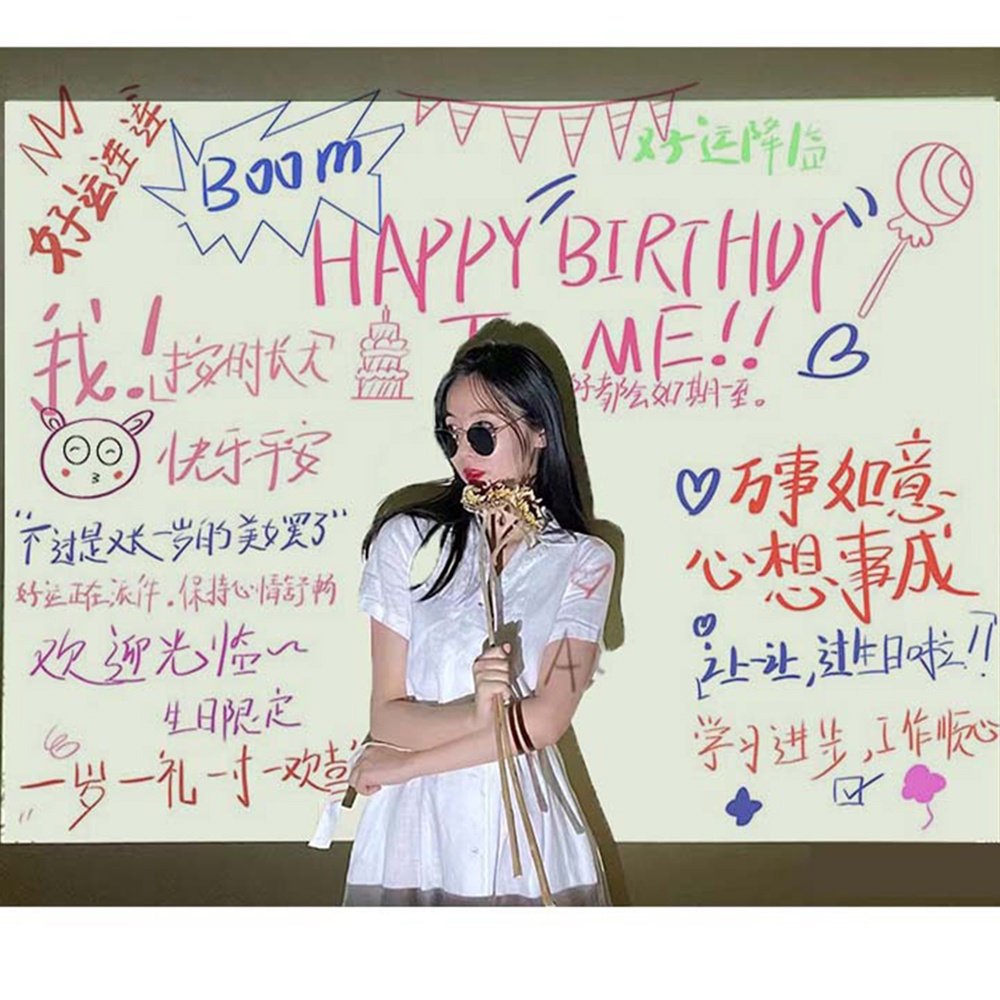 好运连连
Boom
好运降临
HAPPY BIRTHDY
ME!!
B
我!
按时长大
好都会如期一至。
快乐平安
万事如意
心想事成
“不过是又长一岁的美女罢了”
好运正在派件.保持心情舒畅
欢迎光临
让一让,过生日啦!!
生日限定
学习进步,工作顺心
一岁一礼一寸一欢喜
A